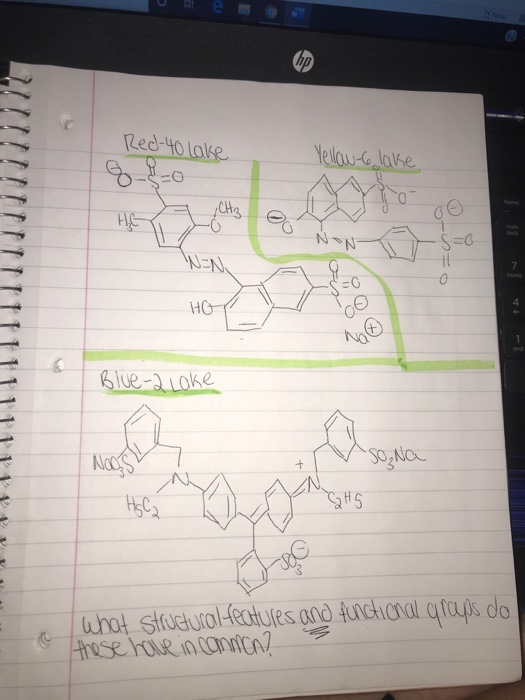 hp
Red-40 lake
Yellow-6 lake
⊖O-S=O
O
H₃C
CH₃
O
N=N
HO
S=O
O
O⊖
Na⊕
⊖O
S
O
O
O⁻
N=N
O⊖
S=O
O
Blue-2 Lake
NaO₃S
N
H₅C₂
+
N
C₂H5
SO₃Na
SO₃⊖
What structural features and functional groups do
these have in common?
7
4
1